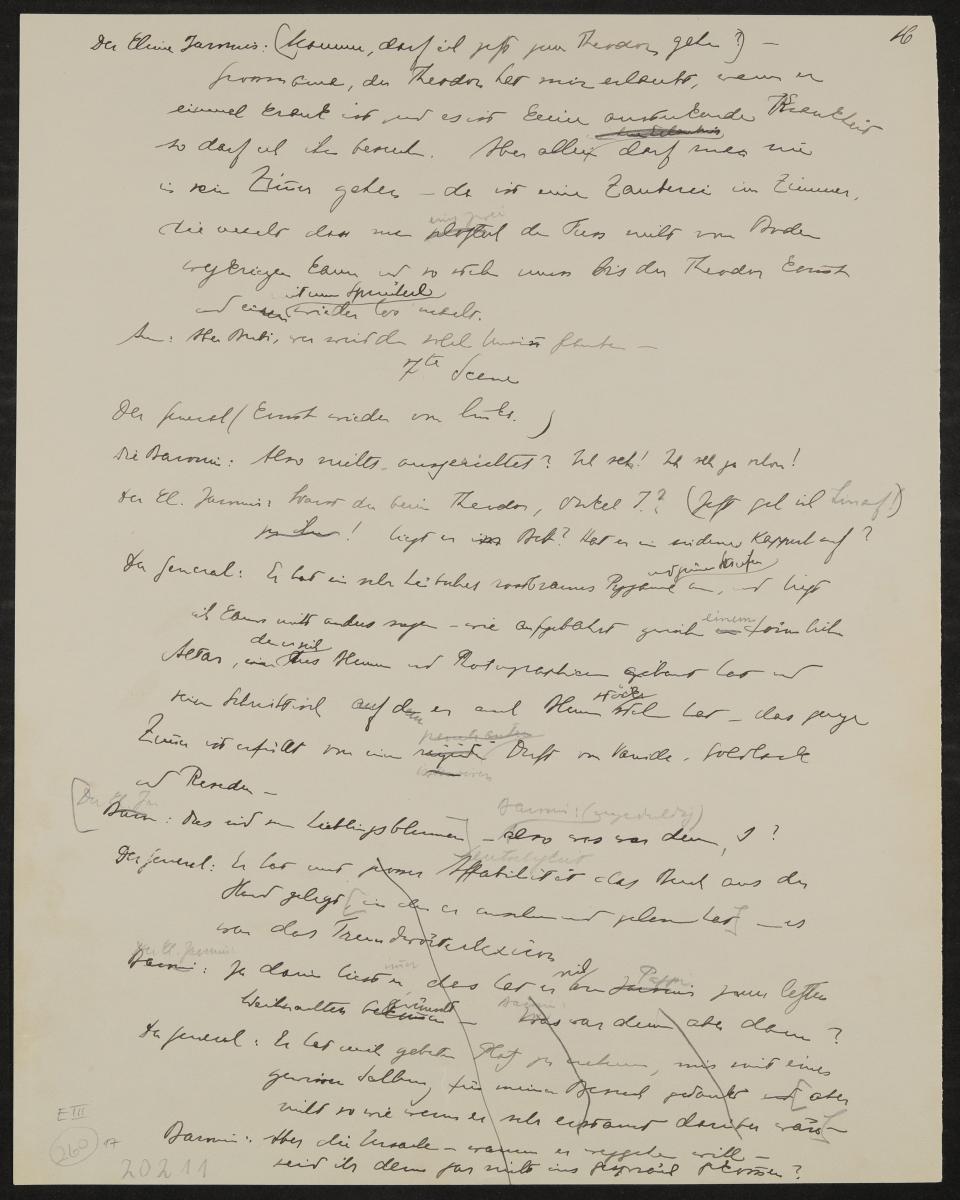 16
Der kleine Jaromir: (Komm, darf ich jetzt zum Theodor gehen?) —
Grossmama, der Theodor hat mir erlaubt, wenn er
einmal krank ist und es ist keine ansteckende Krankheit
so darf ich ihn besuchen. Aber allein darf man nie
in sein Zimmer gehen — da ist eine Zauberei im Zimmer,
die macht dass man plötzlich den Fuss nicht vom Boden
wegkriegen kann und so stehn muss bis der Theodor kommt
und einen mit einem Sprüchel wieder los macht.
An: Aber Bubi, wer wird denn solchen Unsinn glauben —
7te Scene
Der General (kommt wieder von links.)
Die Baronin: Also nichts ausgerichtet? Ich seh! Ich seh ja schon!
Der kl. Jaromir: Warst du beim Theodor, Onkel J.? (Jetzt geh ich hinauf!)
zu ihm! Liegt er im Bett? Hat er ein seidenes Kapperl auf?
Der General: Er hat ein sehr hübsches rostbraunes Pyjama an, und liegt
ich kanns nicht anders sagen — wie aufgebahrt zwischen einem förmlichen
Altar, den er sich aus Blumen und Photographien gebaut hat und
seinem Schreibtisch auf dem er auch Blumenstöcke stehn hat — das ganze
Zimmer ist erfüllt von einem Duft von Vanille, Goldlack
und Reseden —
Der kl. Jar
Baron: Das sind seine Lieblingsblumen —
Baronin: (ungeduldig)
also was war denn, J?
Der General: Er hat mit grosser Affabilität das Buch aus der
Hand gelegt [in dem er anscheinend gelesen hat] — es
war das Fremdwörterlexicon
Der kl. Jaromir:
Baronin: Ja darin liest er immer, das hat er sich von Papa zum letzten
Weihnachten gewünscht — Baronin: Was war denn aber dann?
Der General: Er hat mich gebeten Platz zu nehmen, mir mit einer
gewissen Salbung für meinen Besuch gedankt und [aber
nicht so wie wenn er sehr erstaunt darüber wäre] —
Baronin: Aber die Ursache — warum er weggehen will —
seid ihr denn gar nicht ins Gespräch gekommen?
E III
260
17
20211